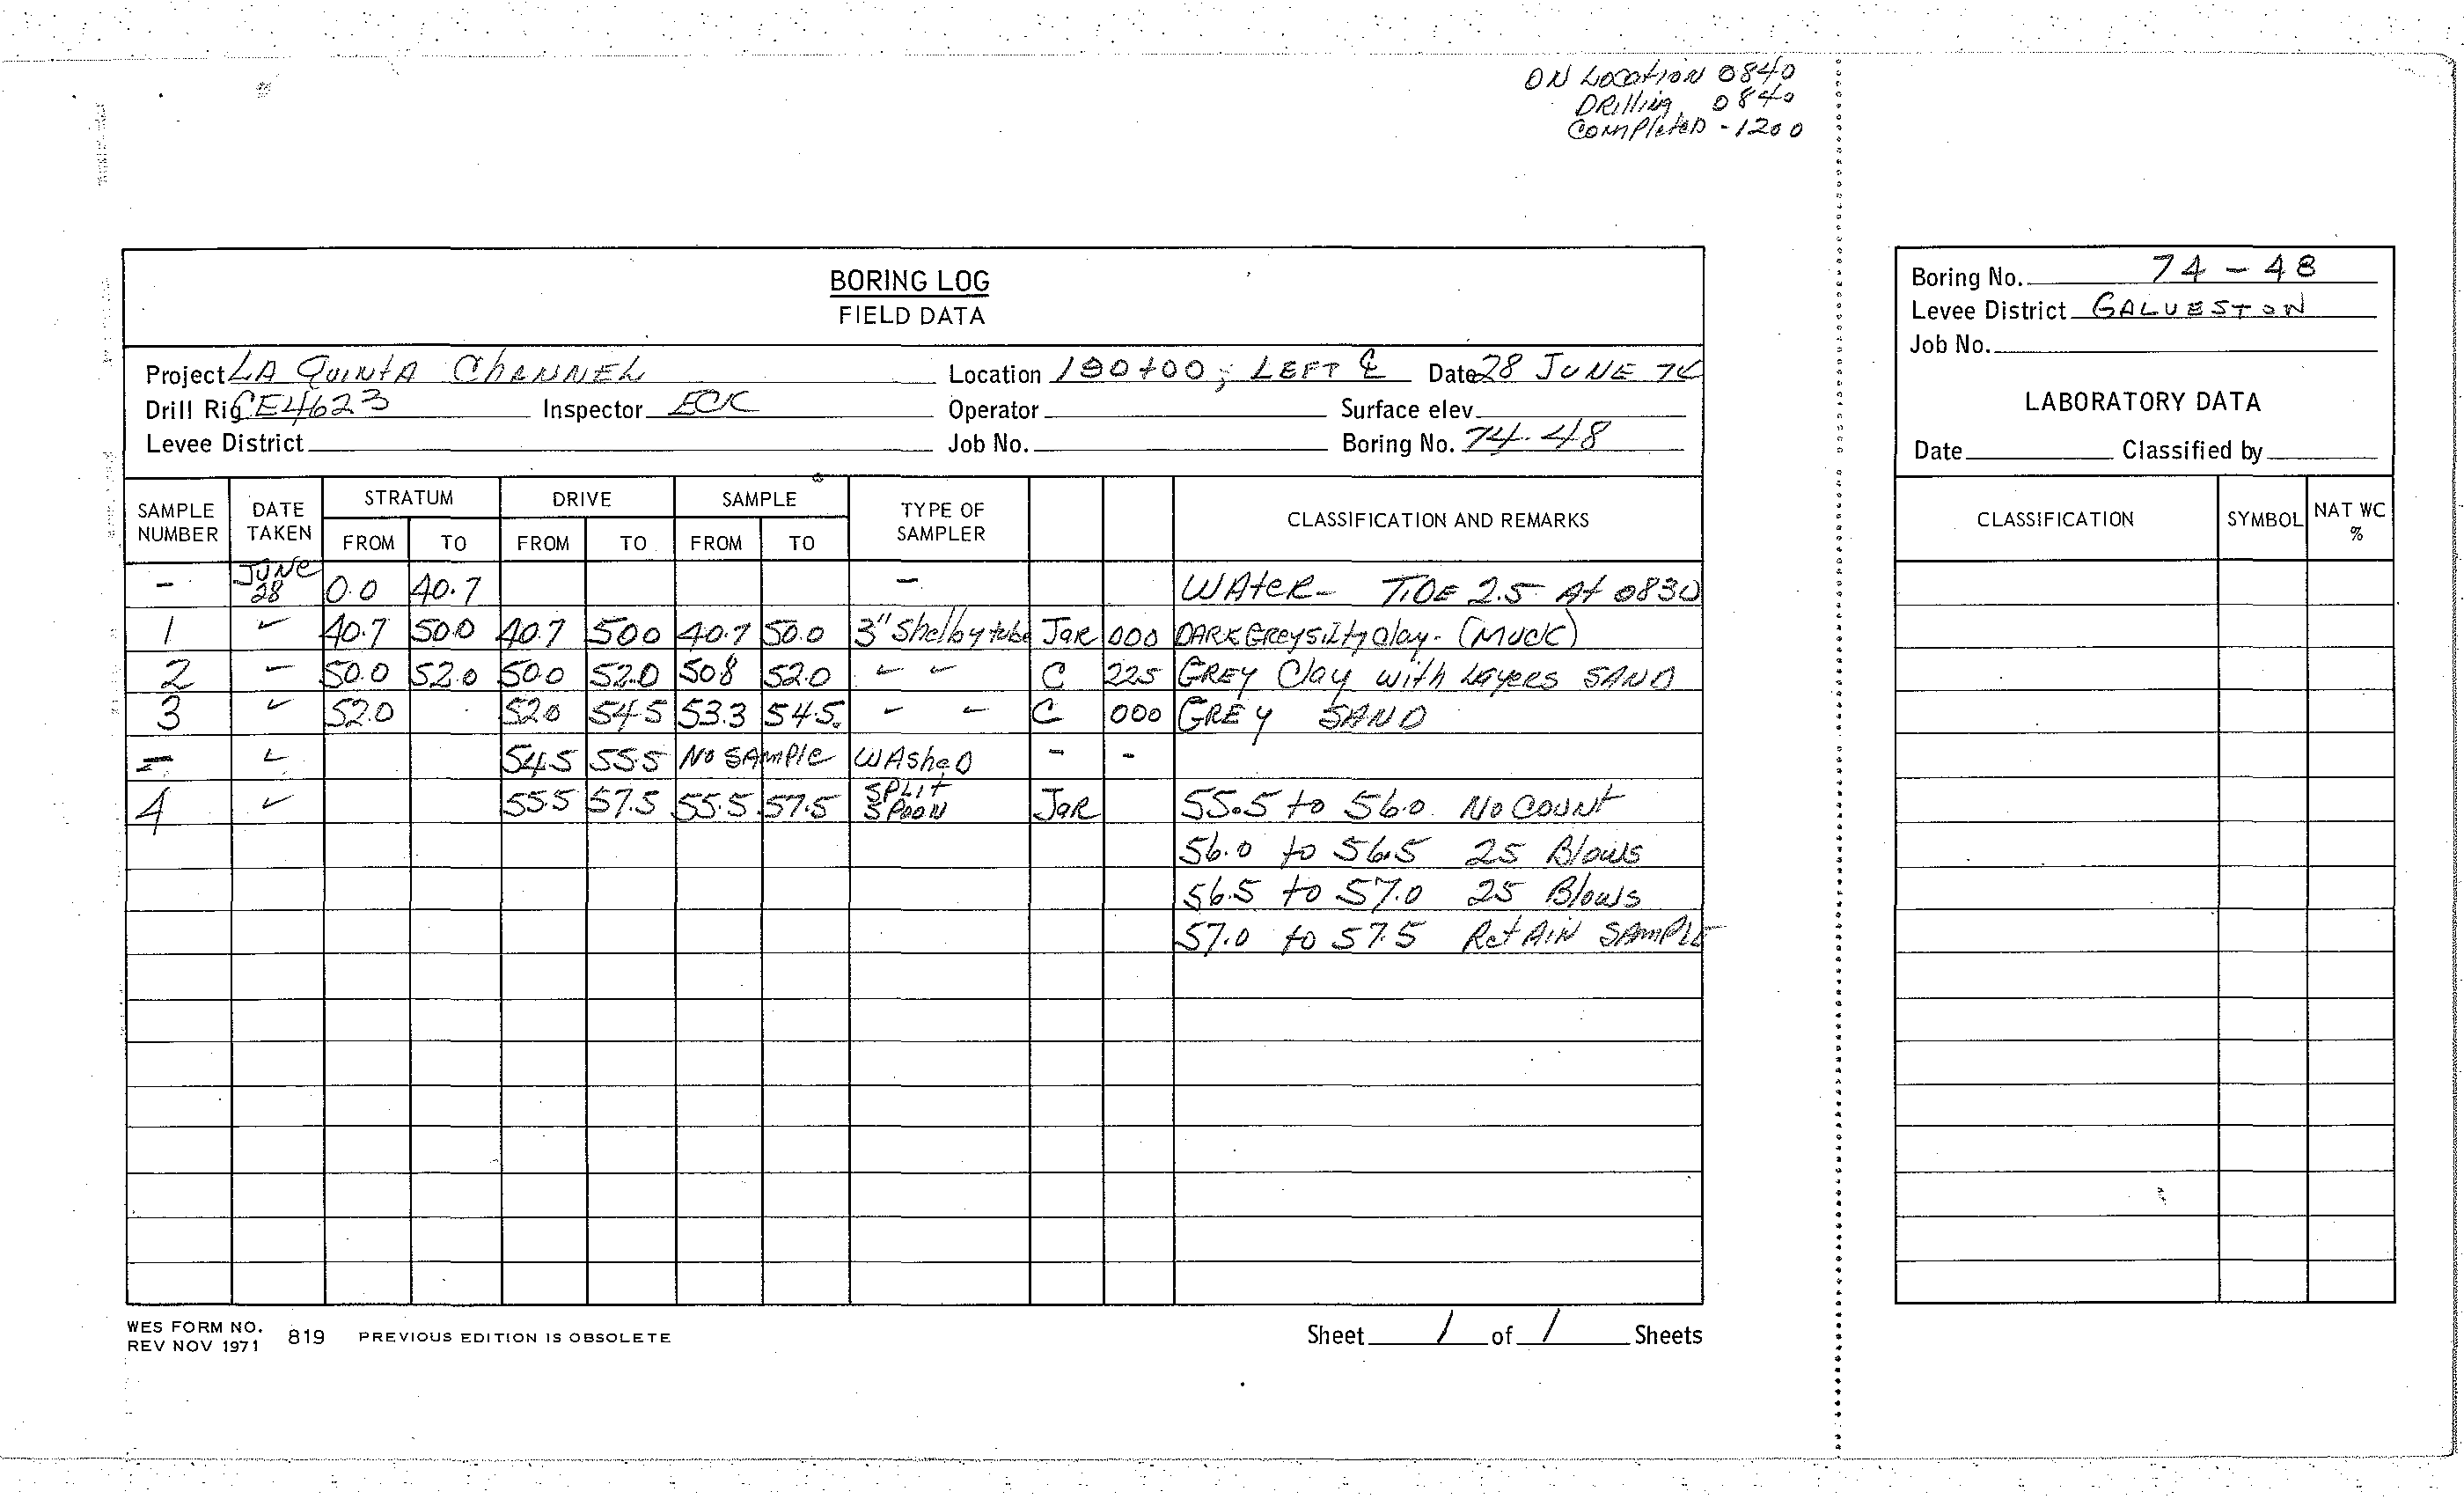 ON LOCATION 0840
DRilling 0840
COMPleteD - 1200
BORING LOG
FIELD DATA
Project LA QUINTA ChANNEL Location 190+00; LEFT ℄ Date 28 JUNE 74
Drill Rig CE4623 Inspector ECK Operator Surface elev.
Levee District Job No. Boring No. 74-48
SAMPLE NUMBER DATE TAKEN STRATUM FROM TO DRIVE FROM TO SAMPLE FROM TO TYPE OF SAMPLER CLASSIFICATION AND REMARKS
- JUNE 28 0.0 40.7 - WAteR- TIDE 2.5 At 0830
1 " 40.7 50.0 40.7 50.0 40.7 50.0 3" Shelby tube JaR 000 DARK GReY Silty Clay. (MUCK)
2 " 50.0 52.0 50.0 52.0 50.8 52.0 " " C 225 GREY Clay with LAYERS SAND
3 " 52.0 52.0 54.5 53.3 54.5 " " C 000 GREY SAND
- " 54.5 55.5 No SAmPle WAsheD - -
4 " 55.5 57.5 55.5 57.5 SPLit SPOON JaR 55.5 to 56.0 No COUNt
56.0 to 56.5 25 Blows
56.5 to 57.0 25 Blows
57.0 to 57.5 RetAIN SAmPLE
WES FORM NO. 819 PREVIOUS EDITION IS OBSOLETE
REV NOV 1971
Sheet 1 of 1 Sheets
Boring No. 74-48
Levee District GALVESTON
Job No.
LABORATORY DATA
Date Classified by
CLASSIFICATION SYMBOL NAT WC %